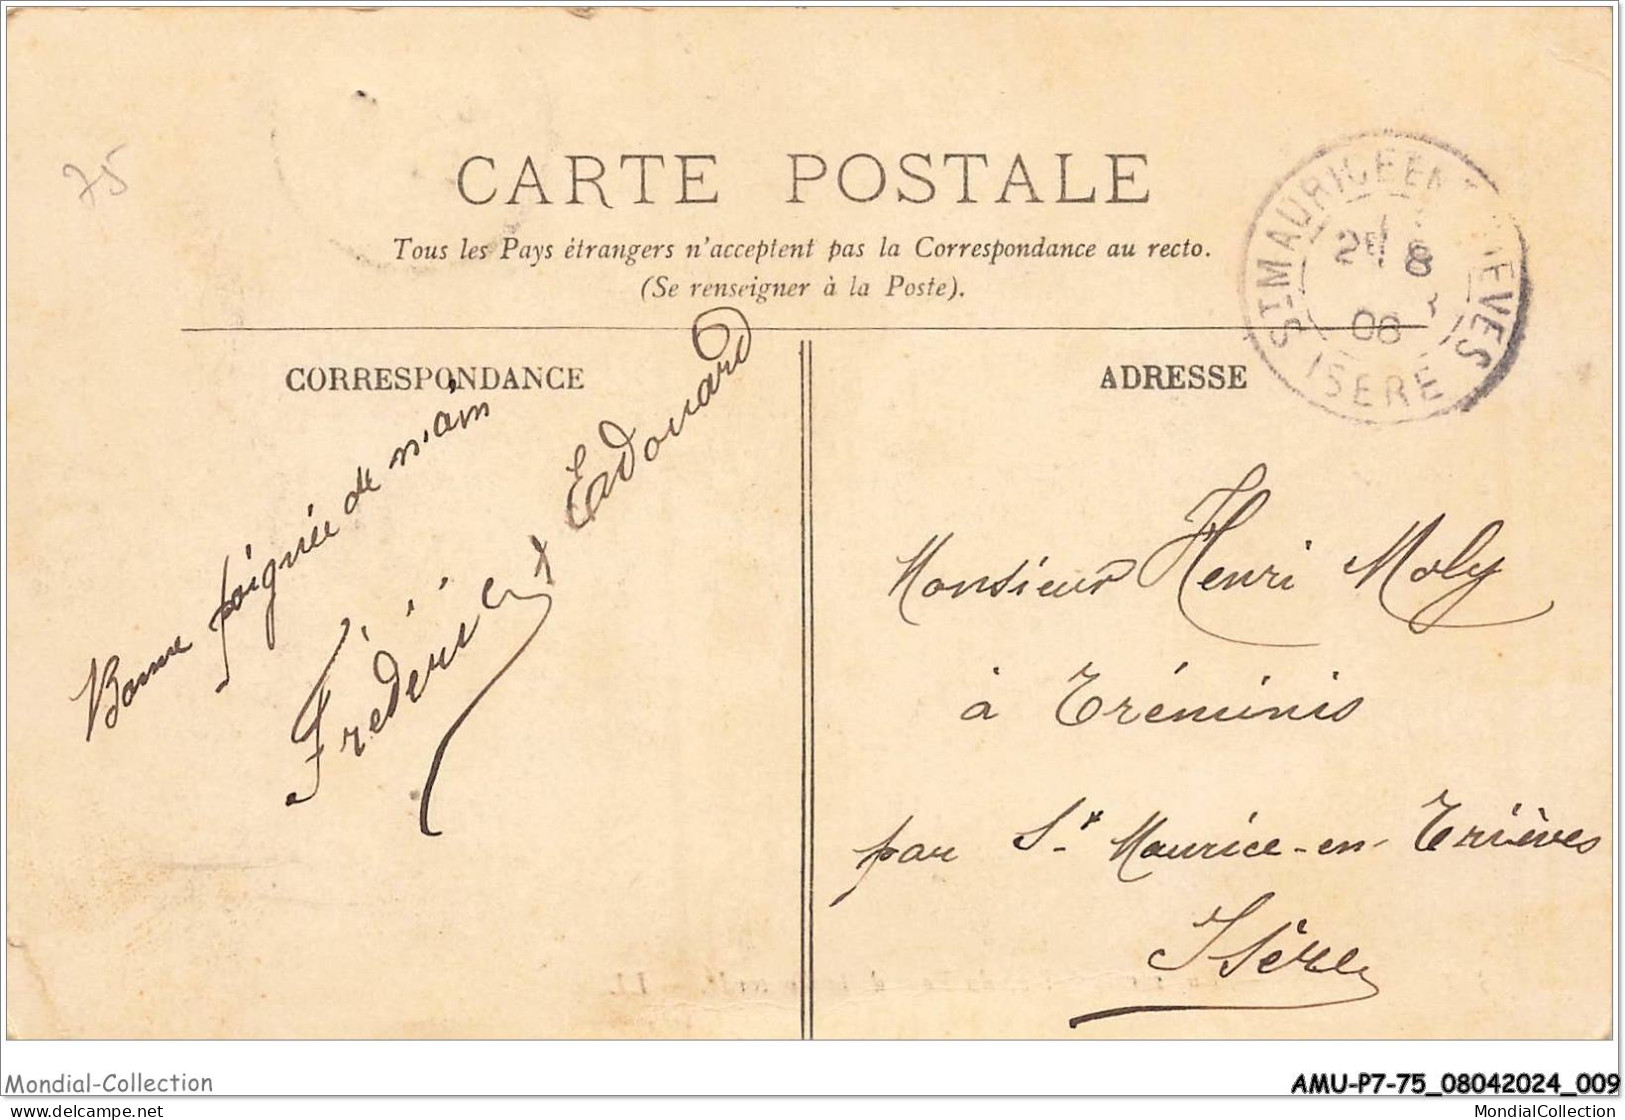 75
CARTE POSTALE
Tous les Pays étrangers n'acceptent pas la Correspondance au recto.
(Se renseigner à la Poste).
ST MAURICE EN
ISERE
8
08
CORRESPONDANCE
Bonne poignée de main
Frédéric et Edouard
ADRESSE
Monsieur Henri Moly
à Tréminis
par St Maurice-en-Trièves
Isère
Mondial-Collection
AMU-P7-75_08042024_009
delcampe.net
MondialCollection